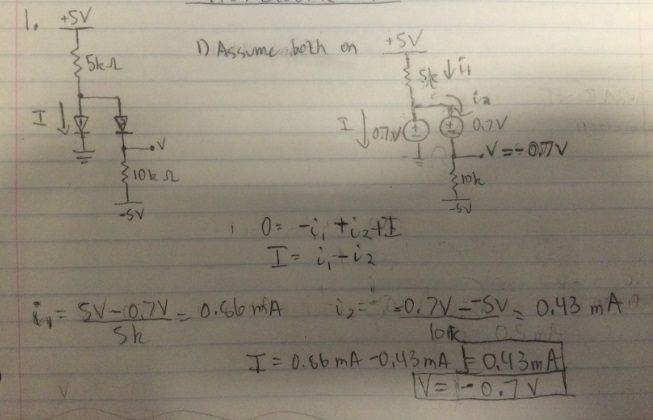 1. +5V
5kΩ
I
V
10kΩ
-5V
1) Assume both on
+5V
5k i₁
i₂
I 0.7V 0.7V
V=-0.7V
10k
-5V
0= -i₁ +i₂+I
I= i₁-i₂
i₁= 5V-0.7V = 0.86 mA
5k
i₂= -0.7V - -5V = 0.43 mA
10k
I = 0.86 mA -0.43mA = 0.43mA
V= -0.7V